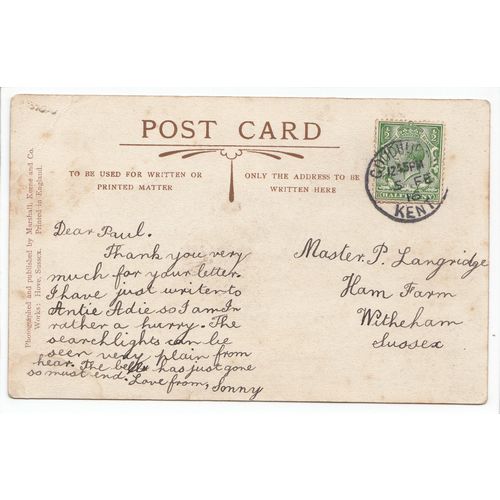 POST CARD
TO BE USED FOR WRITTEN OR
PRINTED MATTER
ONLY THE ADDRESS TO BE
WRITTEN HERE
Photographed and published by Marshall, Keene and Co.
Works: Hove, Sussex. Printed in England.
HALFPENNY
12.45PM
5 FE
16
KENT
Dear Paul.
Thank you very
much for your letter.
I have just writen to
Antie Adie so I am In
rather a hurry. The
searchlights can be
seen very plain from
hear. The bell has just gone
so must end. Love from, Sonny
Master. P. Langridge
Ham Farm
Witheham
Sussex